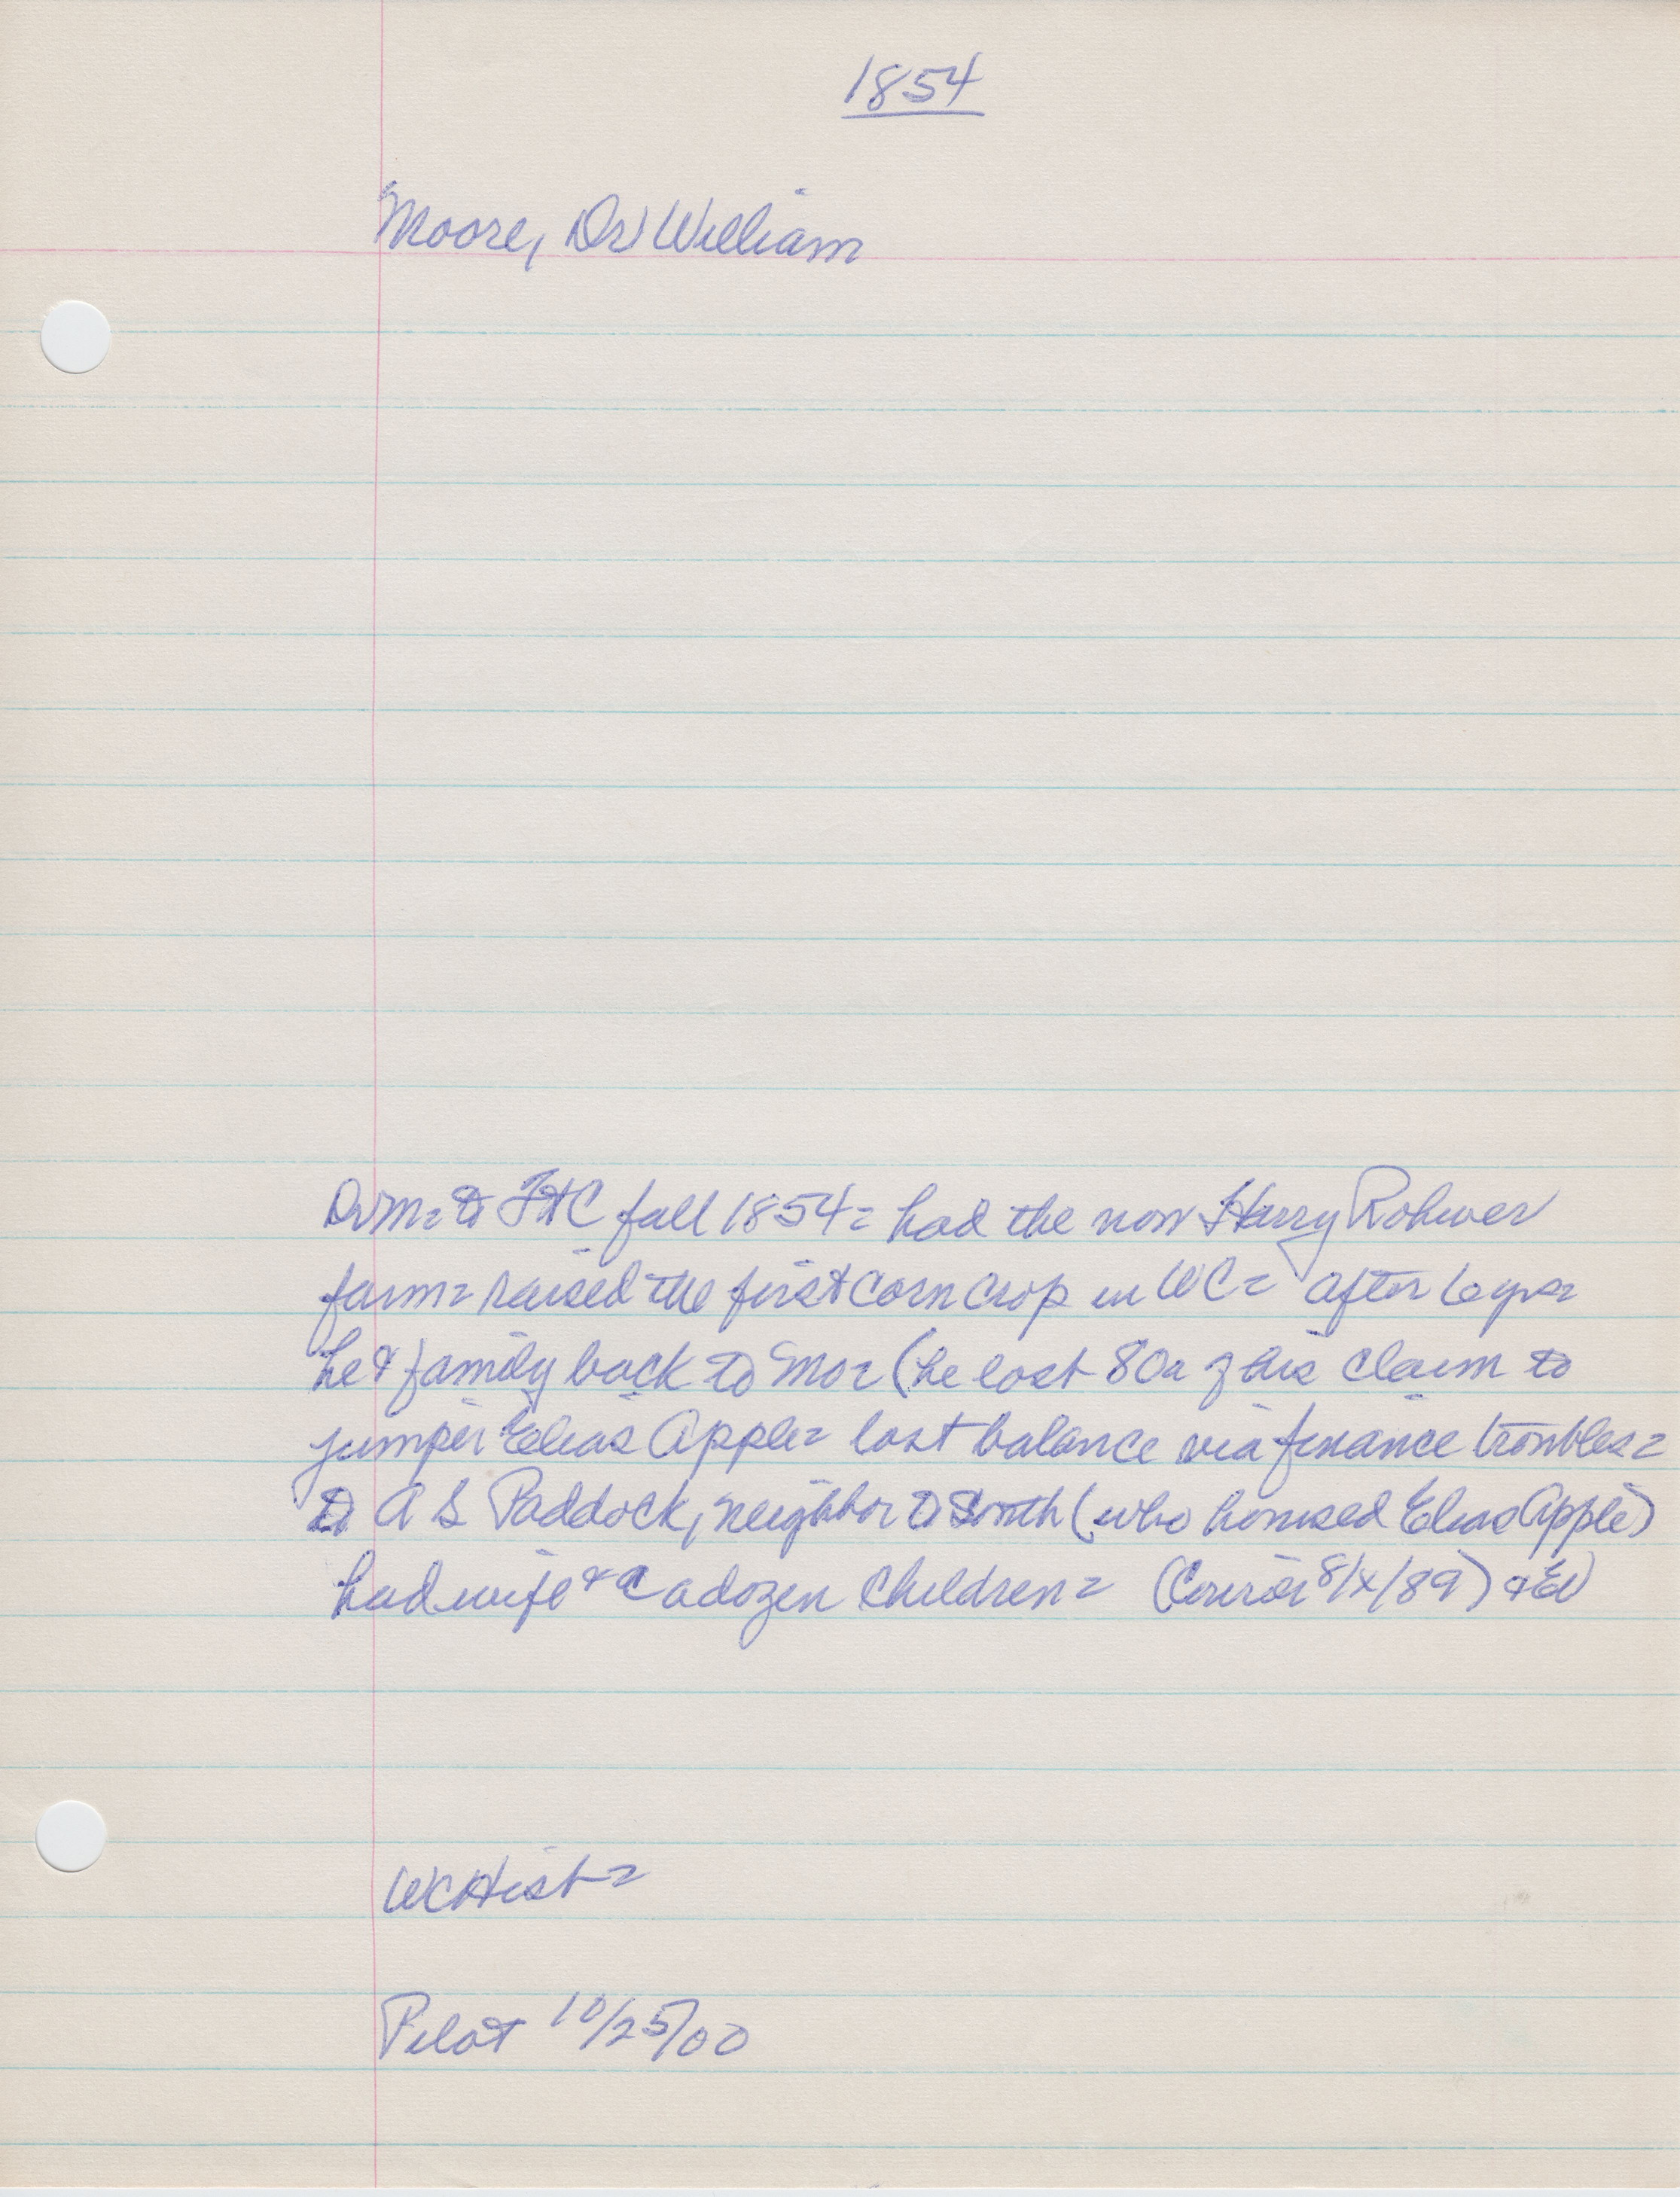 1854
Moore, Dr William
Dr M = to FtC fall 1854 = had the now Harry Rohwer
farm = raised the first corn crop in WC = after 6 yrs =
he & family back to Mo = (he lost 80a of his claim to
jumper Elias Apple = lost balance via finance troubles =
to A S Paddock, neighbor to South (who housed Elias Apple)
had wife & a dozen children = (Courier 8/x/89) &
WCHist =
Pilot 10/25/00